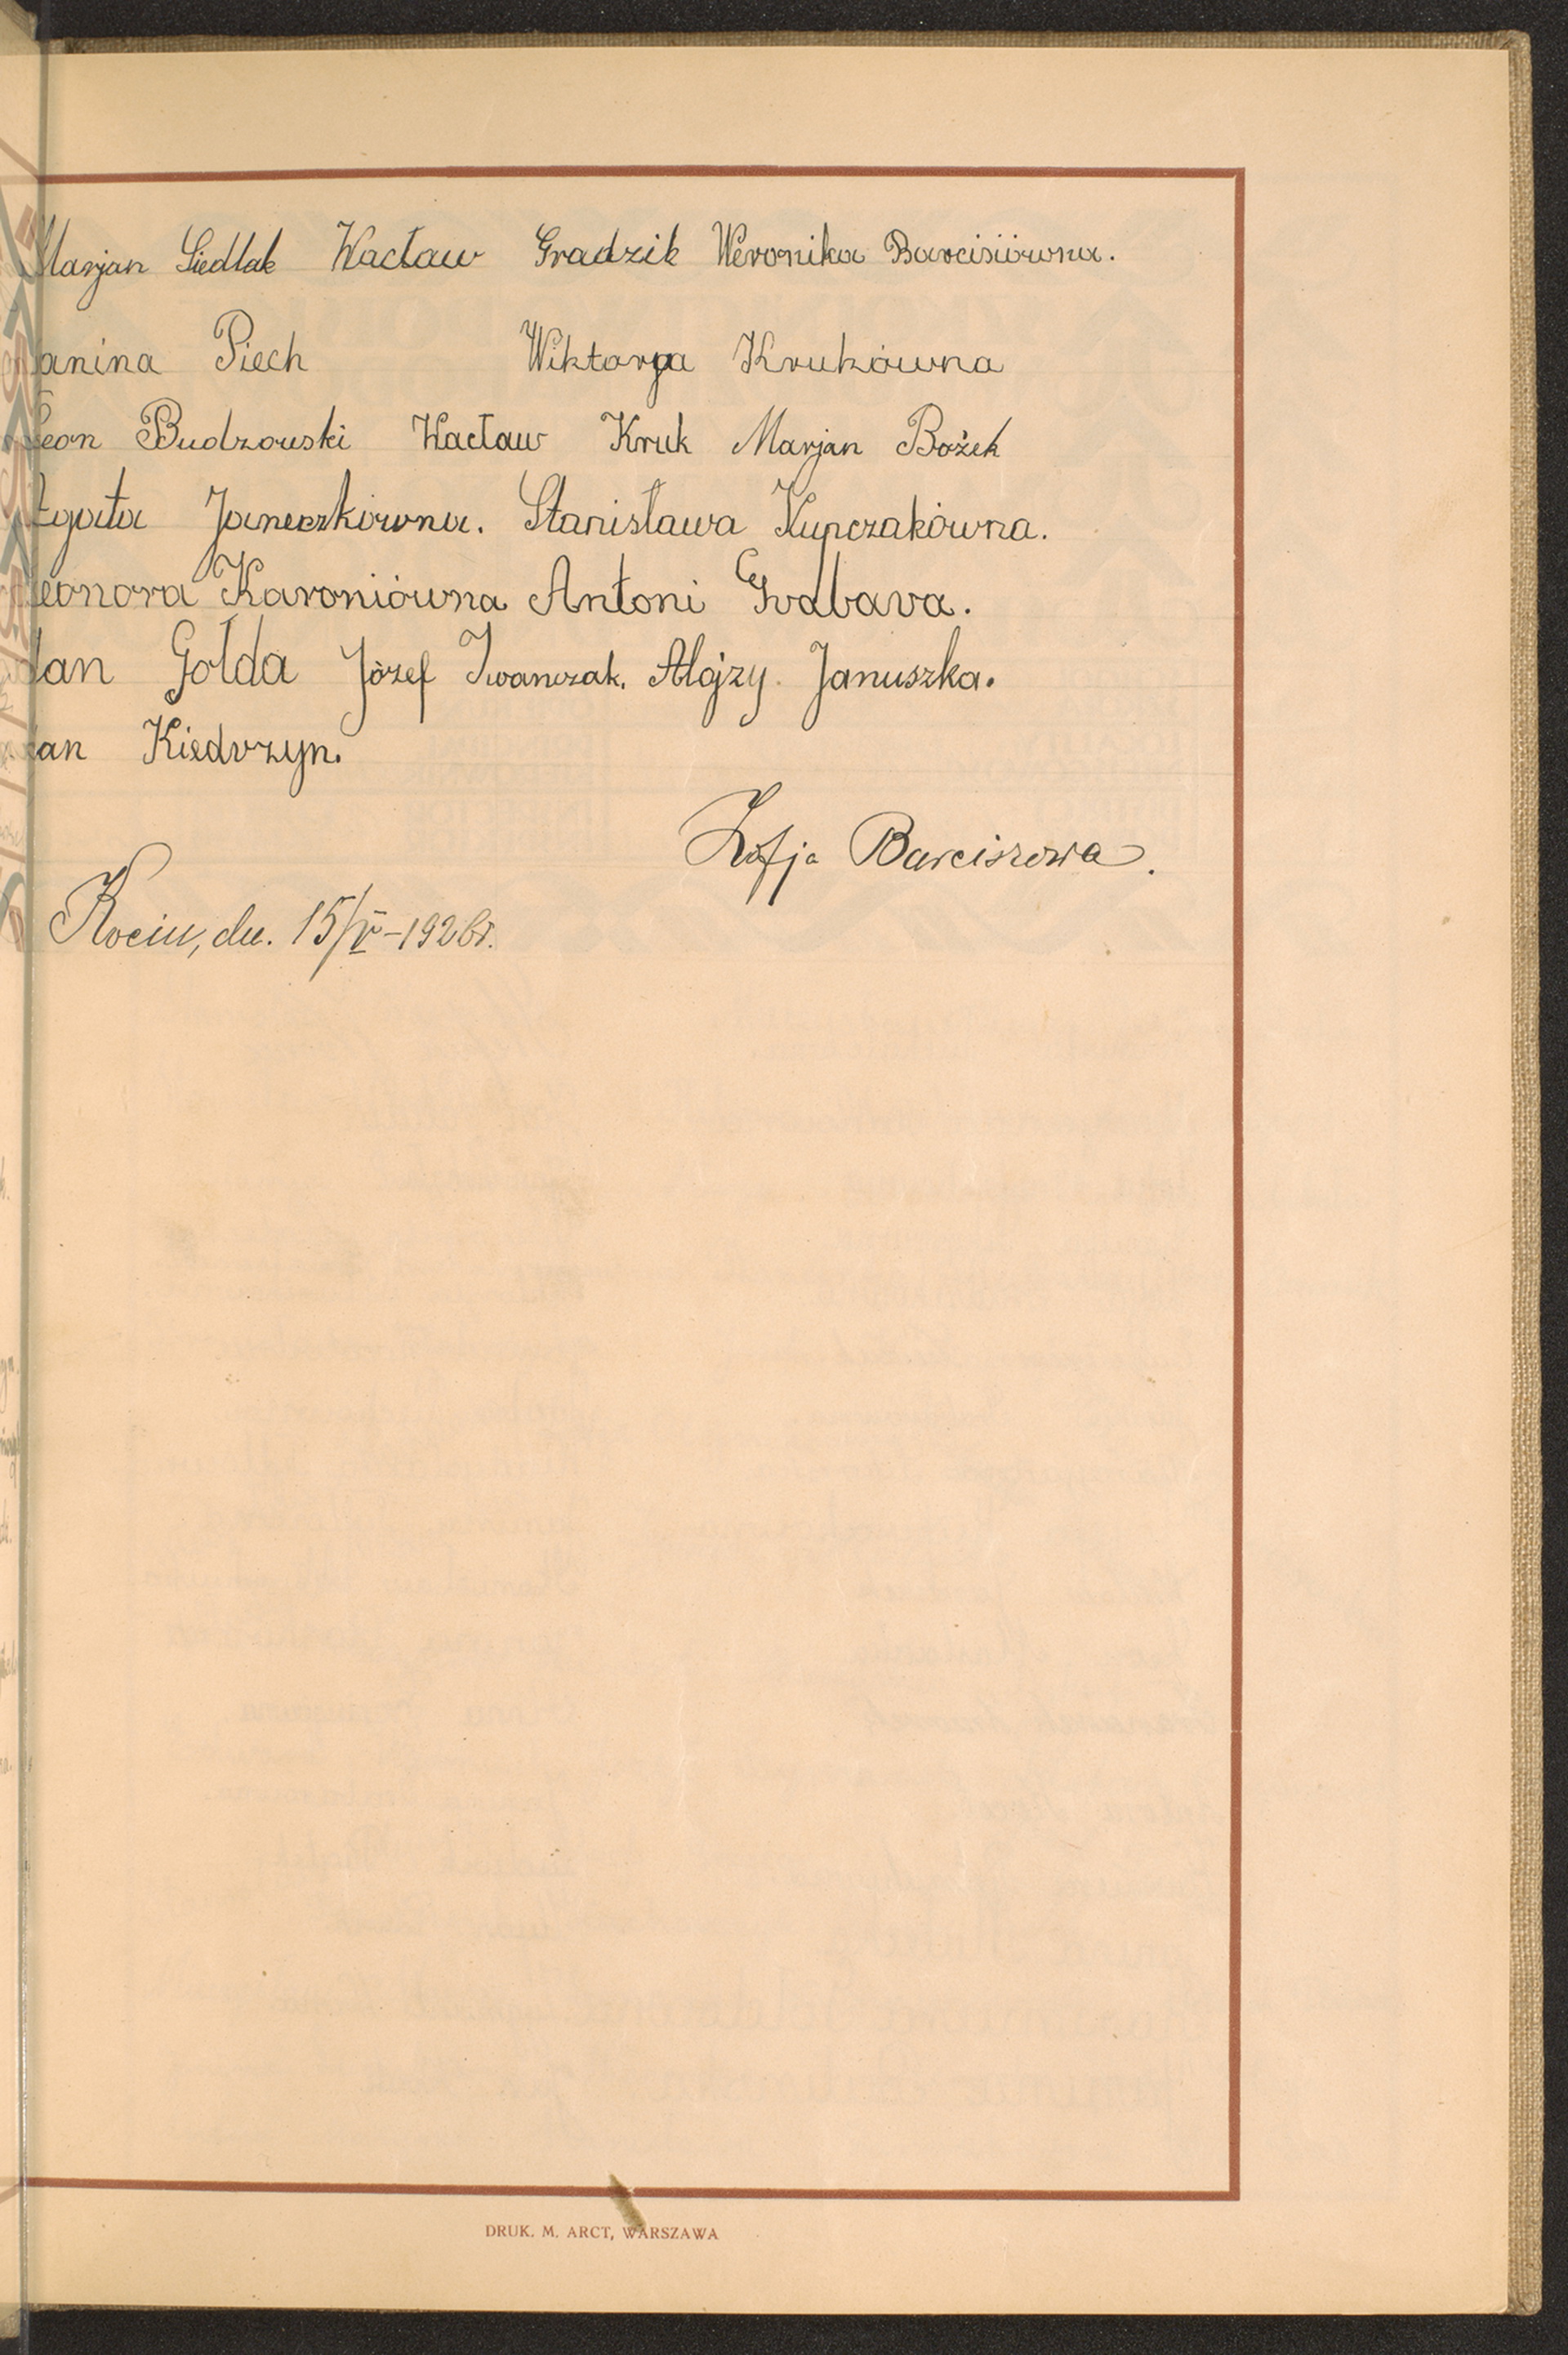 Marjan Siedlak Wacław Gradzik Weronika Barcisiówna.
Janina Piech Wiktorja Krukówna
Leon Budzowski Wacław Kruk Marjan Bożek
Agata Janeczkówna. Stanisława Kupczakówna.
Leonora Karoniówna Antoni Grabara.
Jan Gołda Józef Iwanczak. Alojzy Januszka.
Jan Kiedrzyn.
Zofja Barciszowa.
Kocin, dn. 15/V-1926r.
DRUK. M. ARCT, WARSZAWA